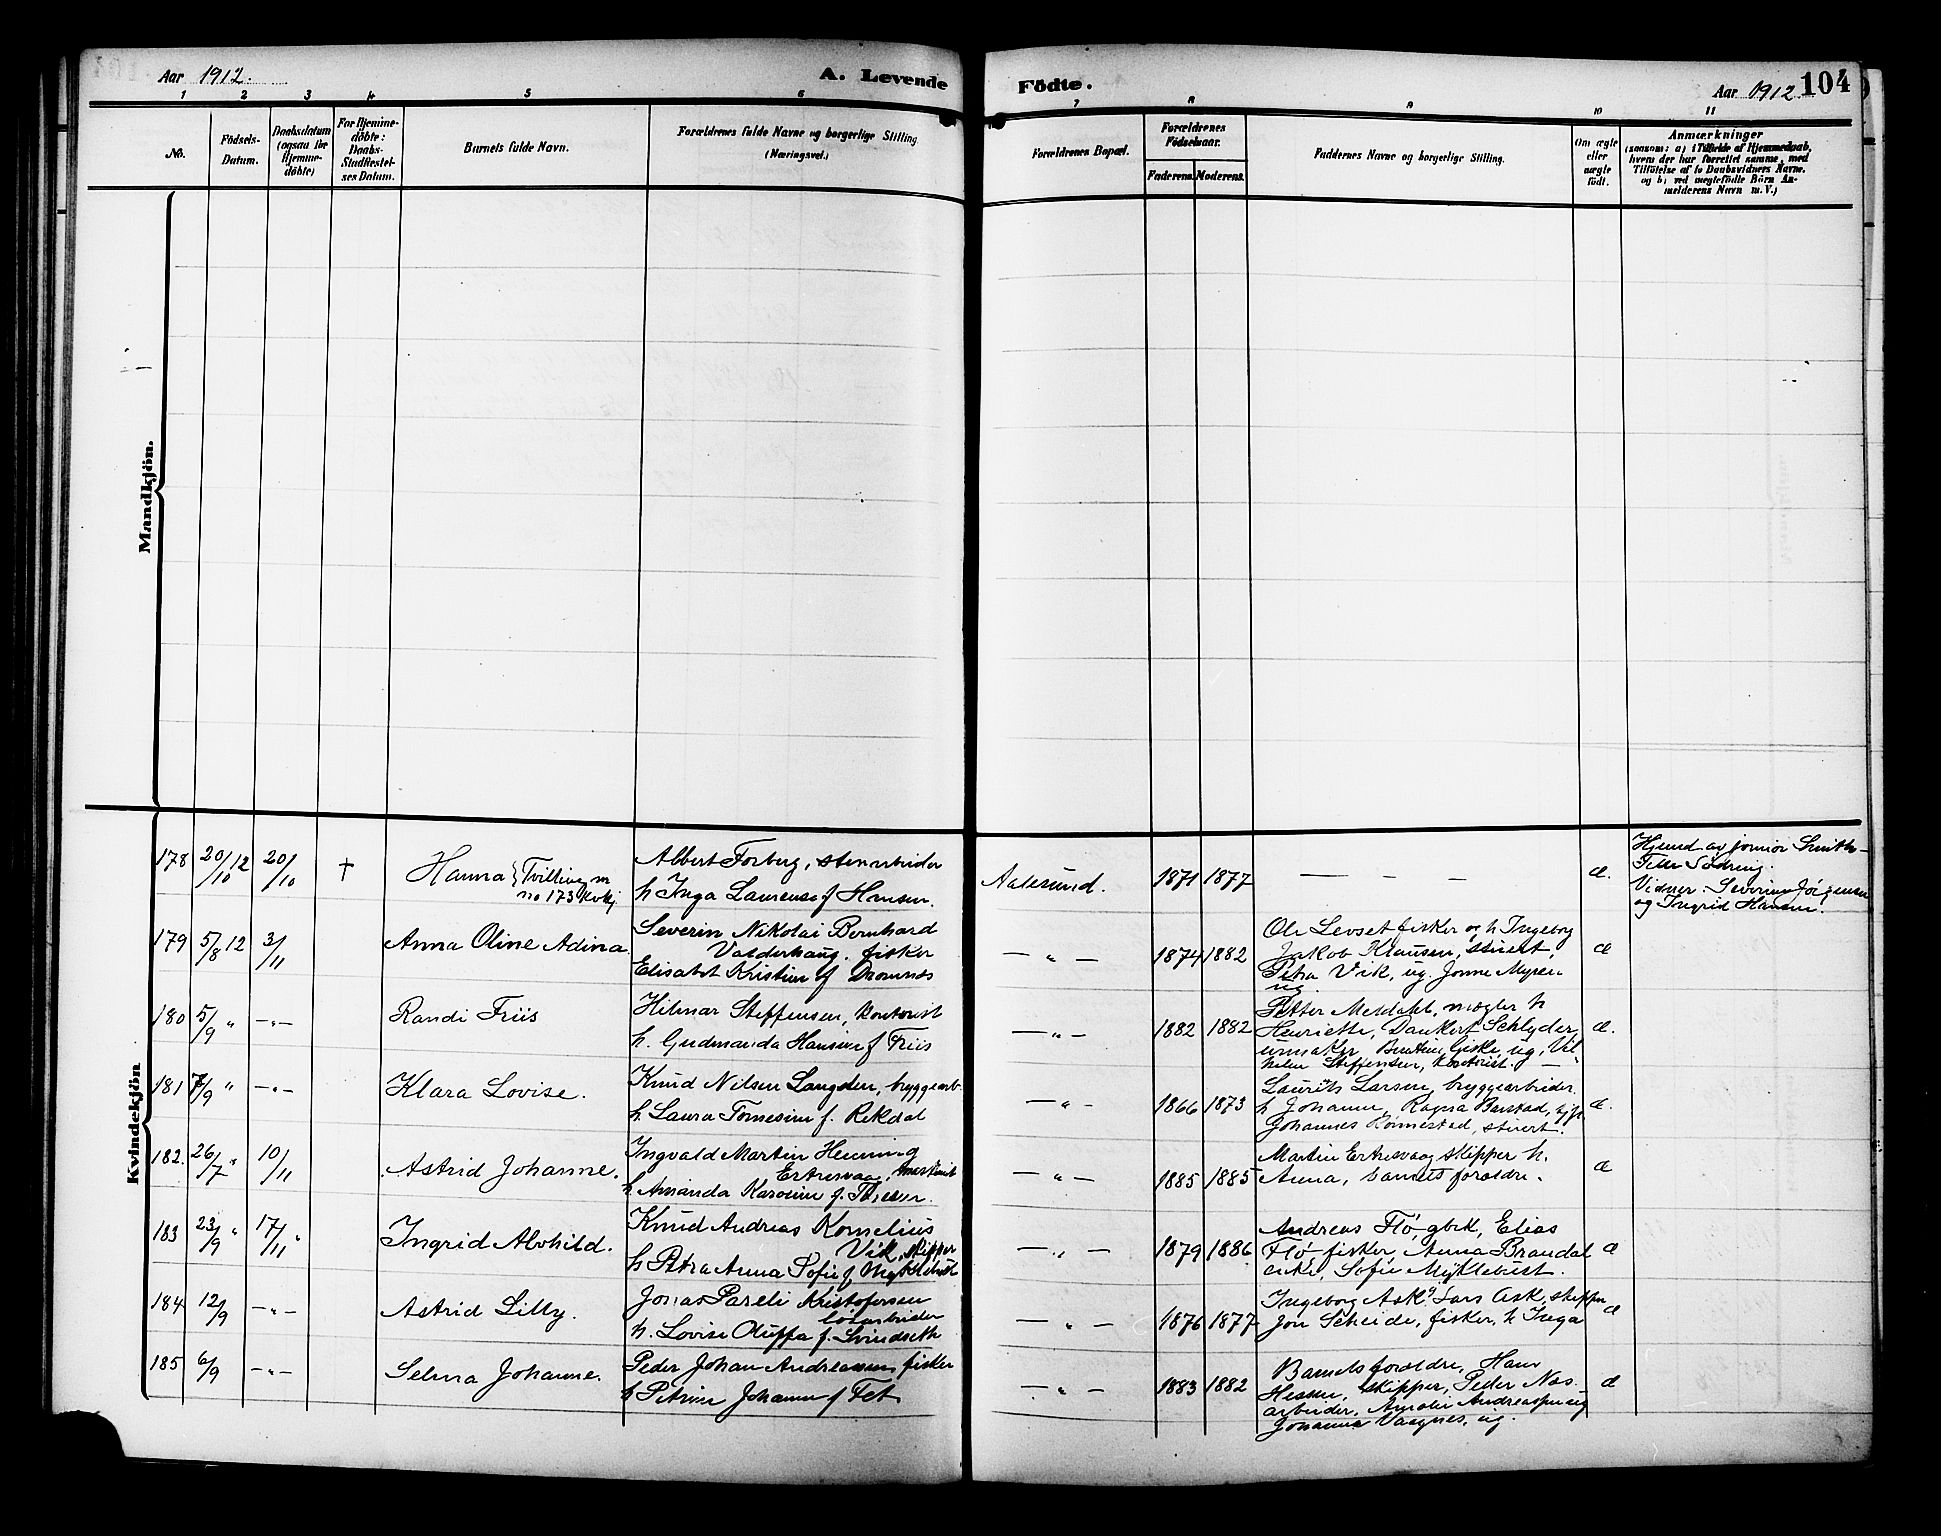 Aar 1912.
A. Levende
Födte.
Aar 1912
104
1 2 3 4 5 6
7 8 9 10 11
No.
Födsels-
Datum.
Daabsdatum
(ogsaa for
Hjemme-
döbte)
For Hjemme-
döbte:
Daabs-
Stadfæstel-
ses Datum.
Barnets fulde Navn.
Forældrenes fulde Navne og borgerlige Stilling
(Næringsvei.)
Forældrenes Bopæl.
Forældrenes
Födselsaar.
Faderens. Moderens.
Faddernes Navne og borgerlige Stilling.
Om ægte
eller
uægte
födt.
Anmærkninger
(saasom: a) i Tilfælde af Hjemmedaab,
hvem der har forrettet samme, med
Tilföielse af to Daabsvidners Navne.
og b) ved uegtefödte Börn An-
melderens Navn m. V.)
Mandkjön.
Kvindekjön
178 20/10 12 20/10 † Hanna Tvilling m
no 173 kvkj
Albert Forberg, stenarbeider
h Inga Laurense f Hansen.
Aalesund. 1871 1877 — — — æ.
Hjemd av jormor Smith-
Petter Södring.
Vidner: Severine Jörgensen
og Ingrid Hansen.
179 5/8 12 3/11 Anna Oline Adina
Severin Nikolai Bernhard
Valderhaug. fisker
Elisabet Kristine f Dromnes
— „ — 1874 1882
Ole Levset fisker og h Ingeborg
Jakob Klausen, stuert,
Petra Vik, ug. Jonne Myren
ug.
æ
180 5/9 „ — „ — Randi Friis
Hilmar Steffensen, kontorist
h. Gudmanda Hansine f Friis
— „ — 1882 1882
Petter Meldahl, mægler h
Henriette, Dankert Schlyder,
urmaker, Giske, ug, Vil-
helm Steffensen, kontorist. —
æ.
181 7/9 „ — „ — Klara Lovise.
Knud Nilsen Langden, bryggearb.
h Laura Tomesine f. Rekdal
— „ — 1866 1873
Laurits Larsen, bryggearbeider
h Johanne, Ragna Barstad,
Johannes Rönnestad, stuert.
æ.
182. 26/7 „ 10/11 Astrid Johanne.
Ingvald Martin Henning
Ertresvaag, maskinist
h Amanda Karoline f.
— „ — 1885 1885
Martin Ertresvaag skipper h.
Anna, barnets foræld­re.
æ
183 23/9 „ 17/11 „ Ingrid Alvhild.
Knud Andreas Kornelius
Vik, skipper
h Petra Anna Sofie f Myklebust
— „ — 1879 1886
Andreas Flö, gbrk, Elias
Flö fisker, Anna Brandal
enke, Sofie Myklebust.
æ
184 12/9 — „ — Astrid Lilly.
Jonas Pareli Kristofersen
lösarbeider
h. Lovise Oluffa f. Svindseth
— „ — 1876 1877
Ingeborg Ask, Lars Ask, skipper
Jon Scheide, fisker, h Inga
æ
185 6/9 — „ — Selma Johanne.
Peder Johan Andreassen fisker
h Petrine Johanne f Fet
— „ — 1883 1882
Barnets forældre, Hans
Hessen, skipper, Peder Nas.
arbeider, Amalie Andreassen ug
Johanne Vaagnes, ug.
æ